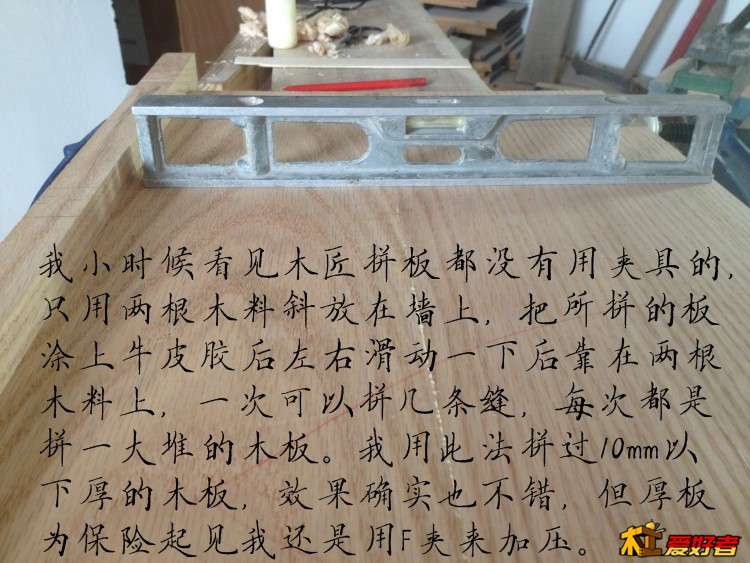 我小时候看见木匠拼板都没有用夹具的,
只用两根木料斜放在墙上，把所拼的板
涂上牛皮胶后左右滑动一下后靠在两根
木料上，一次可以拼几条缝，每次都是
拼一大堆的木板。我用此法拼过10mm以
下厚的木板，效果确实也不错，但厚板
为保险起见我还是用F夹来加压。
木工爱好者